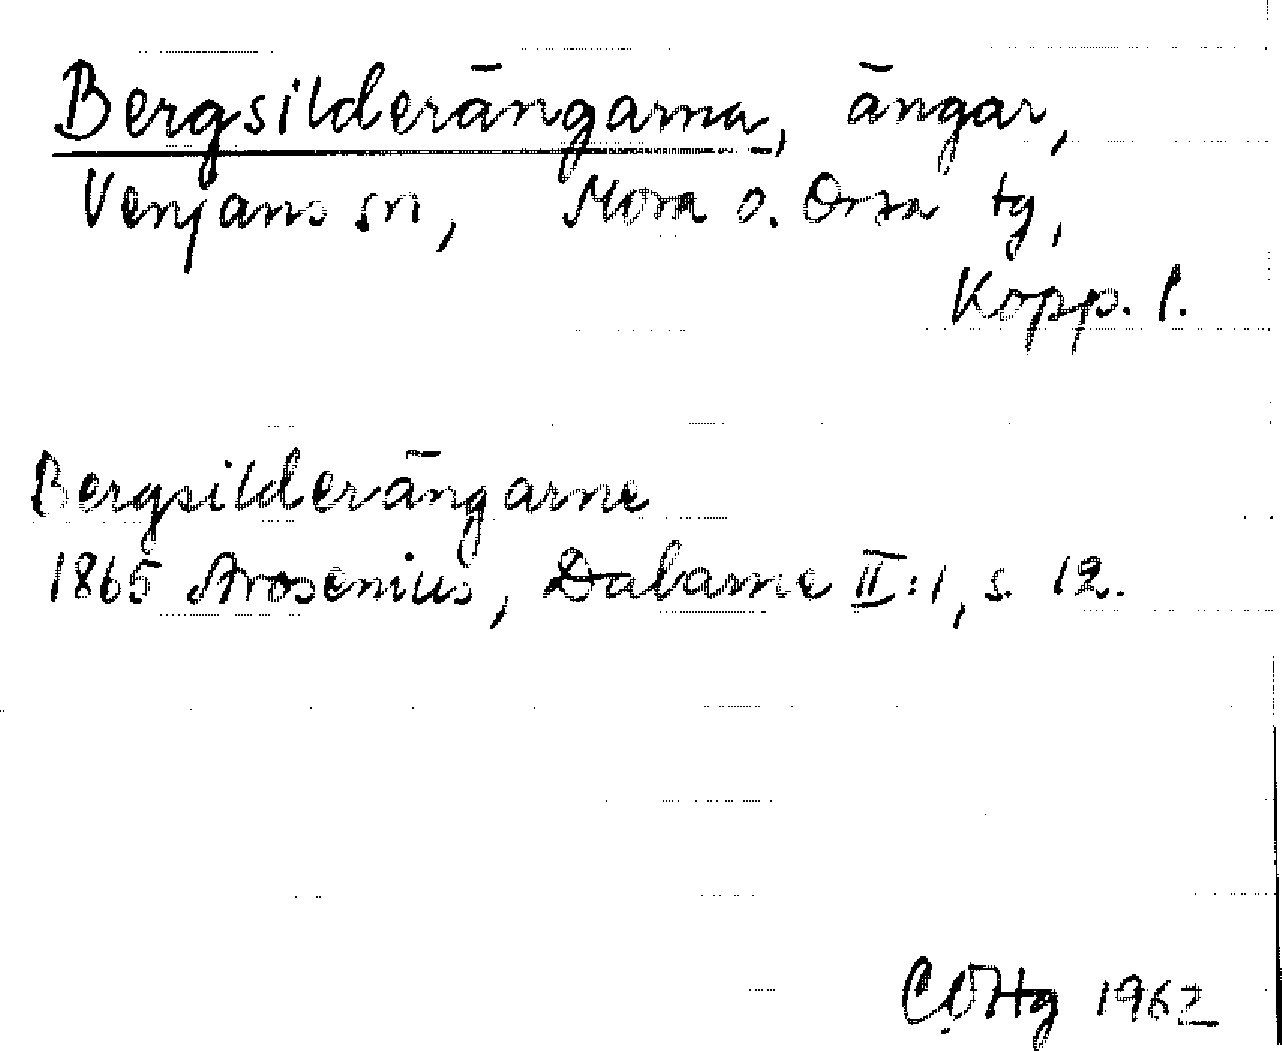 Bergsilderängarna, ängar,
Venjans sn, Mora o. Orsa tg,
Kopp. l.
Bergsilderängarne
1865 Arosenius, Dalarne II:1, s. 12.
1962